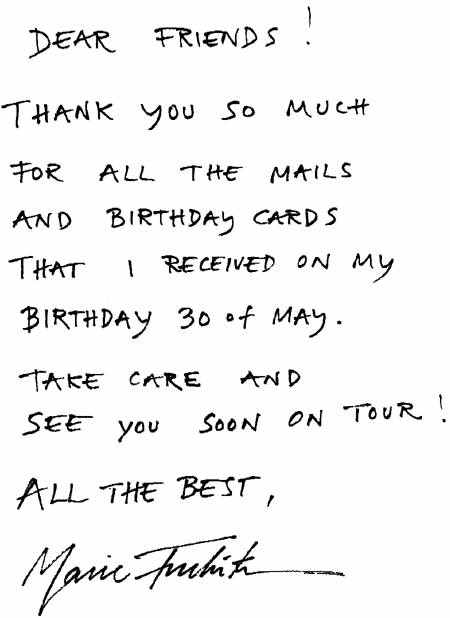 DEAR FRIENDS!
THANK YOU SO MUCH
FOR ALL THE MAILS
AND BIRTHDAY CARDS
THAT I RECEIVED ON MY
BIRTHDAY 30 of MAY.
TAKE CARE AND
SEE YOU SOON ON TOUR!
ALL THE BEST,